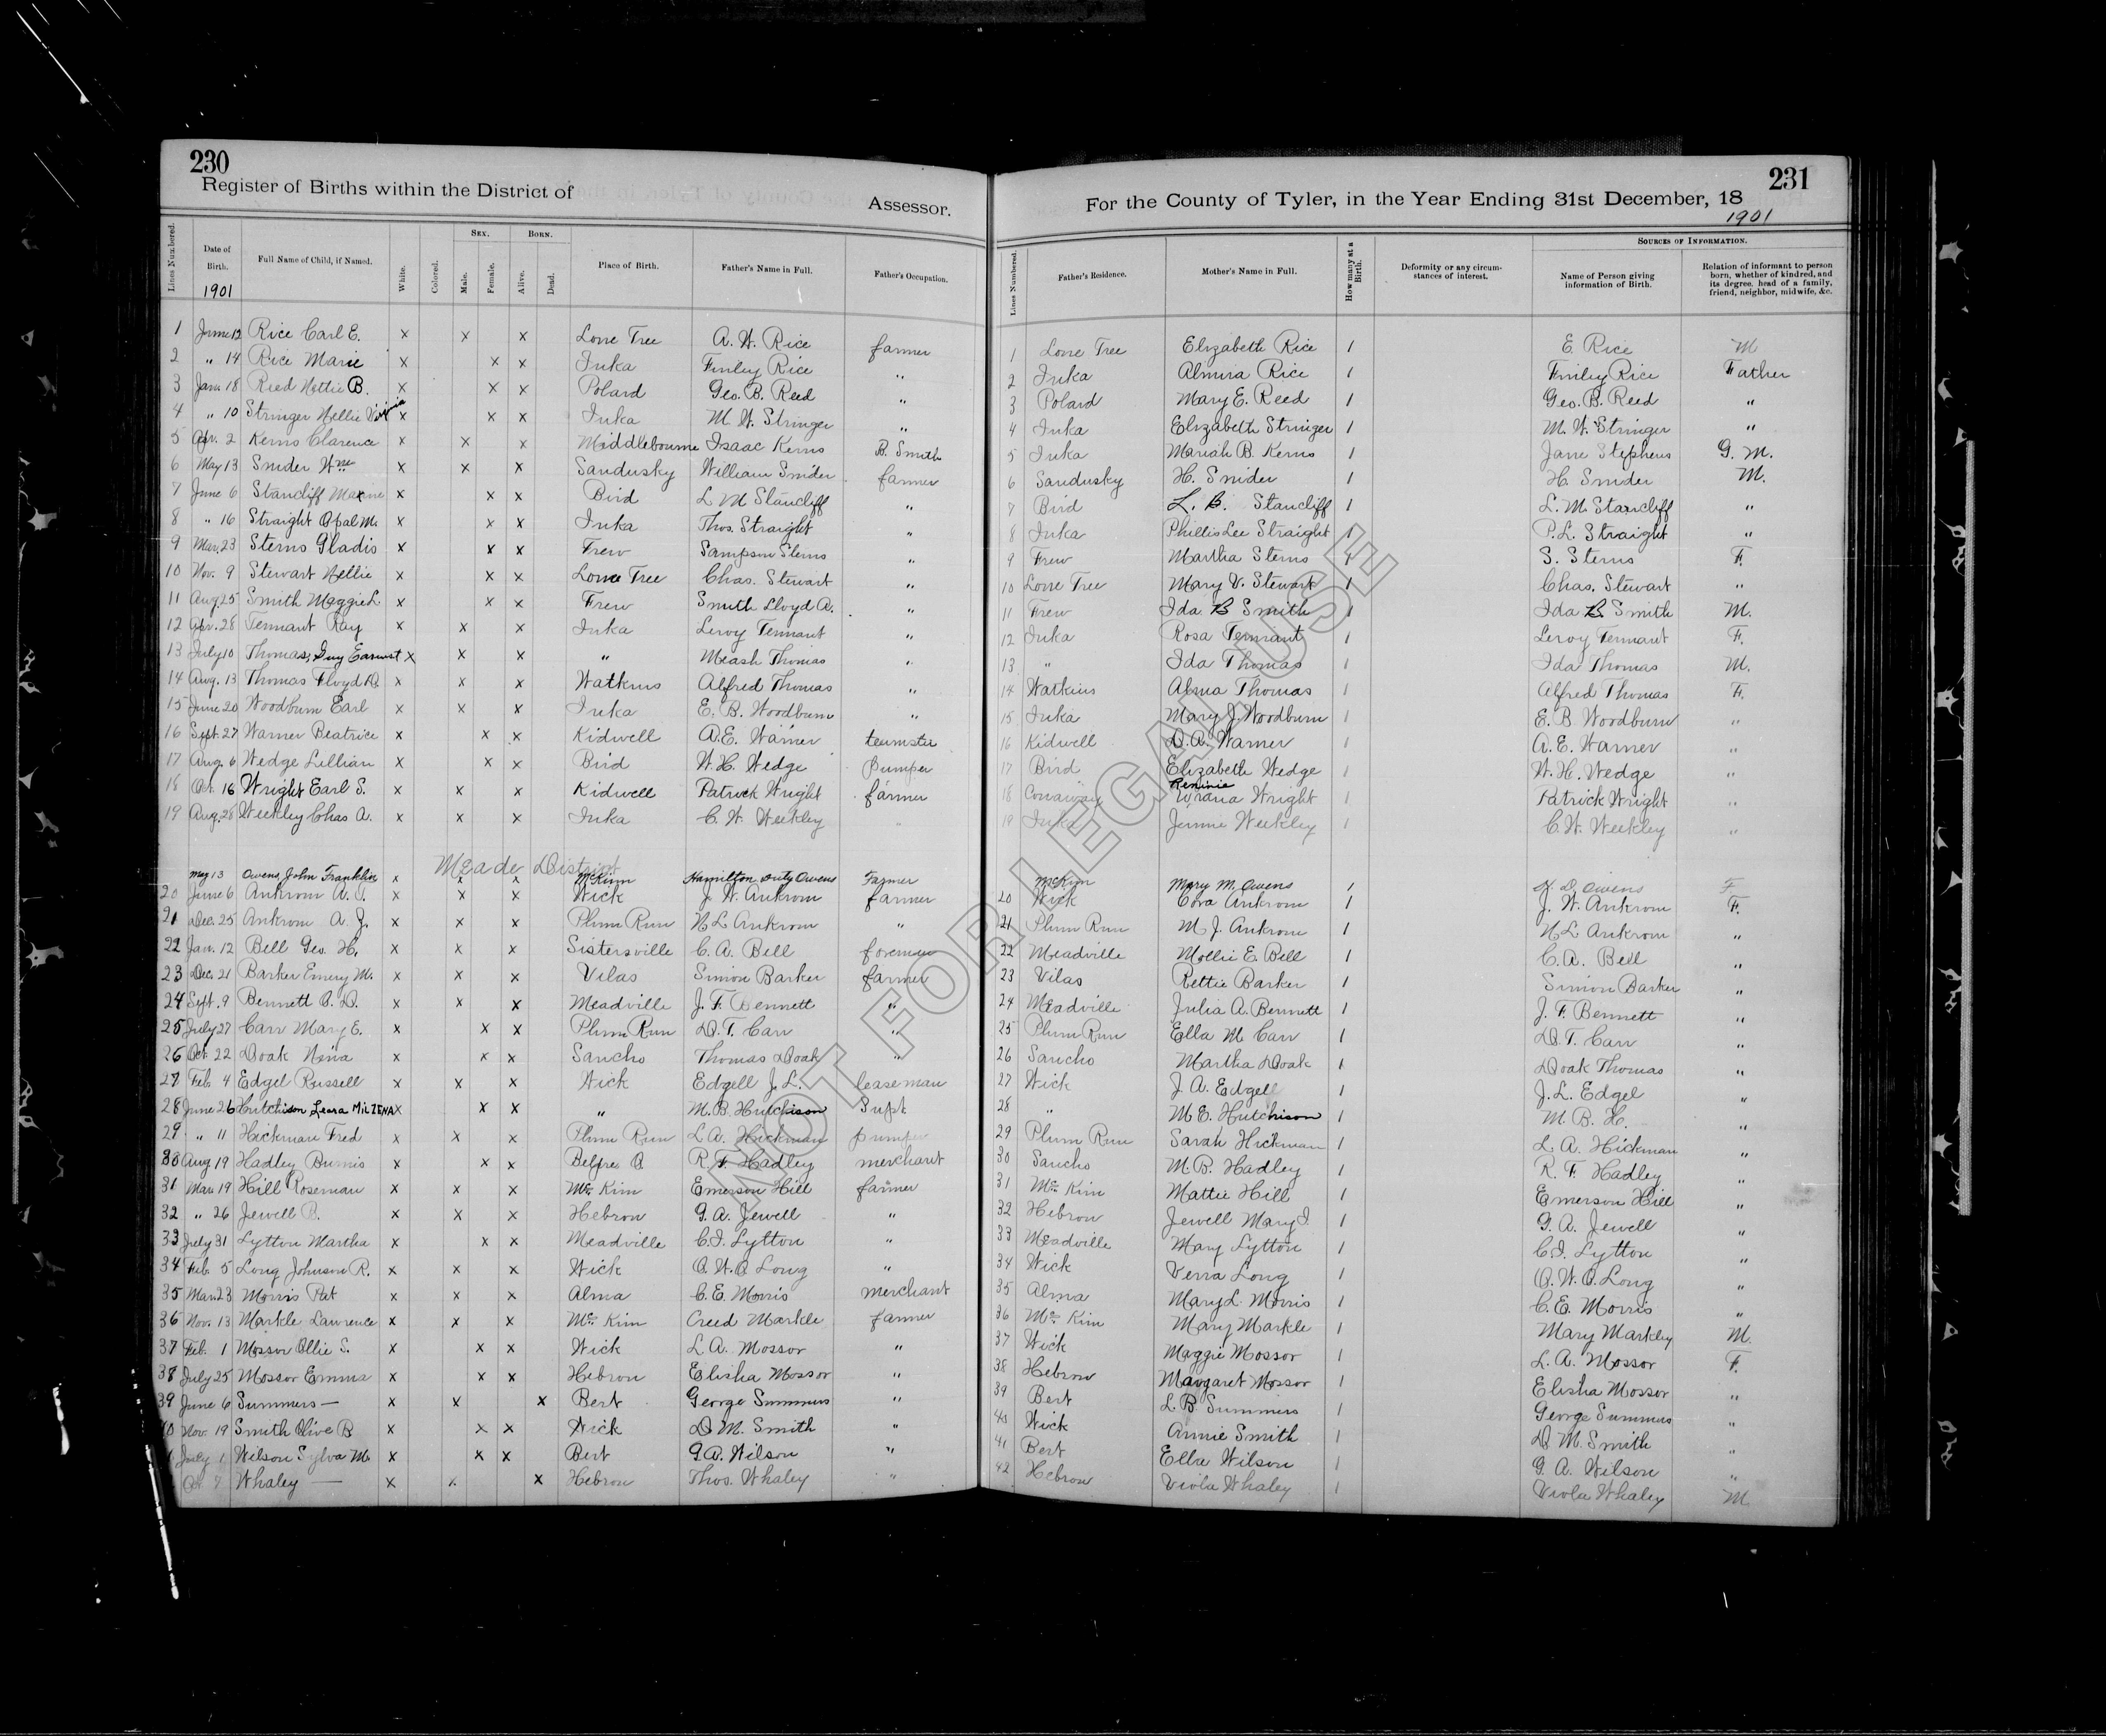 230
Register of Births within the District of
Assessor.
Lines Numbered.
Date of Birth.
1901
Full Name of Child, if Named.
White.
Colored.
Sex.
Male.
Female.
Born.
Alive.
Dead.
Place of Birth.
Father's Name in Full.
Father's Occupation.
1 June 12 Rice Carl E. x x x Lone Tree A. W. Rice farmer
2 " 14 Rice Marie x x x Iuka Finley Rice "
3 Jan. 18 Reed Hettie B. x x x Polard Geo. B. Reed "
4 " 10 Stringer Nellie Virginia x x x Iuka M. W. Stringer "
5 Apr. 2 Kerns Clarence x x x Middlebourne Isaac Kerns B. Smith
6 May 13 Snider Wm x x x Sandusky William Snider farmer
7 June 6 Stancliff Maxine x x x Bird L M Stancliff "
8 " 16 Straight Opal M. x x x Iuka Thos. Straight "
9 Mar. 23 Sterns Gladis x x x Frew Sampson Sterns "
10 Nov. 9 Stewart Nellie x x x Lone Tree Chas. Stewart "
11 Aug. 25 Smith Maggie L x x x Frew Smith Lloyd A. "
12 Apr. 28 Tennant Ray x x x Iuka Leroy Tennant "
13 July 10 Thomas, Guy Earnest x x x " Meash Thomas "
14 Aug. 13 Thomas Floyd D. x x x Watkins Alfred Thomas "
15 June 20 Woodburn Earl x x x Iuka E. B. Woodburn "
16 Sept. 27 Warner Beatrice x x x Kidwell A. E. Warner teamster
17 Aug. 6 Wedge Lillian x x x Bird W. H. Wedge Pumper
18 Oct. 16 Wright Earl S. x x x Kidwell Patrick Wright farmer
19 Aug. 28 Weekley Chas A. x x x Iuka C. W. Weekley "
Meade District
May 13 Owens, John Franklin x x x McKim Hamilton Duty Owens Farmer
20 June 6 Ankrom A. T. x x x Wick J. W. Ankrom farmer
21 Dec. 25 Ankrom A. J. x x x Plum Run N L Ankrom "
22 Jan. 12 Bell Geo. H. x x x Sistersville C. A. Bell foreman
23 Dec. 21 Barker Emery M. x x x Vilas Simon Barker farmer
24 Sept. 9 Bennett O. D. x x x Meadville J. F. Bennett "
25 July 27 Carr Mary E. x x x Plum Run D. T. Carr "
26 Oct. 22 Doak Nina x x x Sancho Thomas Doak "
27 Feb. 4 Edgel Russell x x x Wick Edgell J. L. lease man
28 June 26 Hutchison Leara MILZENA x x x " M. B. Hutchison Supt
29 " 11 Hickman Fred x x x Plum Run L A. Hickman pumper
30 Aug 19 Hadley x x x Belpre O R. F. Hadley merchant
31 Mar. 19 Hill Roseman x x x Mc Kim Emerson Hill farmer
32 " 26 Jewell B. x x x Hebron G. A. Jewell "
33 July 31 Lytton Martha x x x Meadville C. I. Lytton "
34 Feb. 5 Long Johnson R. x x x Wick O. W. O Long "
35 Mar. 23 Morris Pat x x x Alma C. E. Morris merchant
36 Nov. 13 Markle Lawrence x x x Mc Kim Creed Markle farmer
37 Feb. 1 Mossor Ollie S. x x x Wick L A. Mossor "
38 July 25 Mossor Emma x x x Hebron Elisha Mossor "
39 June 6 Summers — x x x Bert George Summers "
40 Nov. 19 Smith Olive B x x x Wick D. M. Smith "
July 1 Wilson Sylva M. x x x Bert G. A. Wilson "
Oct. 7 Whaley — x x x Hebron Thos. Whaley "
231
For the County of Tyler, in the Year Ending 31st December, 18
1901
Lines Numbered.
Father's Residence.
Mother's Name in Full.
How many at a Birth.
Deformity or any circumstances of interest.
Sources of Information.
Name of Person giving information of Birth.
Relation of informant to person born, whether of kindred, and its degree, head of a family, friend, neighbor, midwife, &c.
1 Lone Tree Elizabeth Rice 1 E. Rice M
2 Iuka Almira Rice 1 Finley Rice Father
3 Polard Mary E. Reed 1 Geo. B. Reed "
4 Iuka Elizabeth Stringer 1 M. W. Stringer "
5 Iuka Mariah B. Kerns 1 Jane Stephens G. M.
6 Sandusky H. Snider 1 H. Snider M.
7 Bird L. B. Stancliff 1 L. M. Stancliff "
8 Iuka Phillis Lee Straight 1 P. L. Straight "
9 Frew Martha Sterns 1 S. Sterns F.
10 Lone Tree Mary V. Stewart 1 Chas. Stewart "
11 Frew Ida B Smith 1 Ida B Smith M.
12 Iuka Rosa Tennant 1 Leroy Tennant F.
13 " Ida Thomas 1 Ida Thomas M.
14 Watkins Alma Thomas 1 Alfred Thomas F.
15 Iuka Mary J. Woodburn 1 E. B Woodburn "
16 Kidwell D. A. Warner 1 A. E. Warner "
17 Bird Elizabeth Wedge 1 W. H. Wedge "
18 Conaway Wright 1 Patrick Wright "
19 Iuka Jennie Weekley 1 C. W. Weekley "
McKim Mary M. Owens 1 H. D. Owens F
20 Wick Cora Ankrom 1 J. W. Ankrom F.
21 Plum Run M J. Ankrom 1 N L Ankrom "
22 Meadville Mollie E. Bell 1 C. A. Bell "
23 Vilas Rettie Barker 1 Simon Barker "
24 Meadville Julia A. Bennett 1 J. F. Bennett "
25 Plum Run Ella M Carr 1 D. T. Carr "
26 Sancho Martha Doak 1 Doak Thomas "
27 Wick J. A. Edgell 1 J. L. Edgel "
28 " M. E. Hutchison 1 M. B. H. "
29 Plum Run Sarah Hickman 1 L. A. Hickman "
30 Sancho M. B. Hadley 1 R. F. Hadley "
31 Mc Kim Mattie Hill 1 Emerson Hill "
32 Hebron Jewell Mary I. 1 G. A. Jewell "
33 Meadville Mary Lytton 1 C. I. Lytton "
34 Wick Verra Long 1 O. W. O. Long "
35 Alma Mary L. Morris 1 C. E. Morris "
36 Mc Kim Mary Markle 1 Mary Markley M.
37 Wick Maggie Mossor 1 L. A. Mossor F.
38 Hebron Margaret Mossor 1 Elisha Mossor "
39 Bert L. B Summers 1 George Summers "
40 Wick Annie Smith 1 D. M. Smith "
41 Bert Ella Wilson 1 G. A. Wilson "
42 Hebron Viola Whaley 1 Viola Whaley M
NOT FOR LEGAL USE